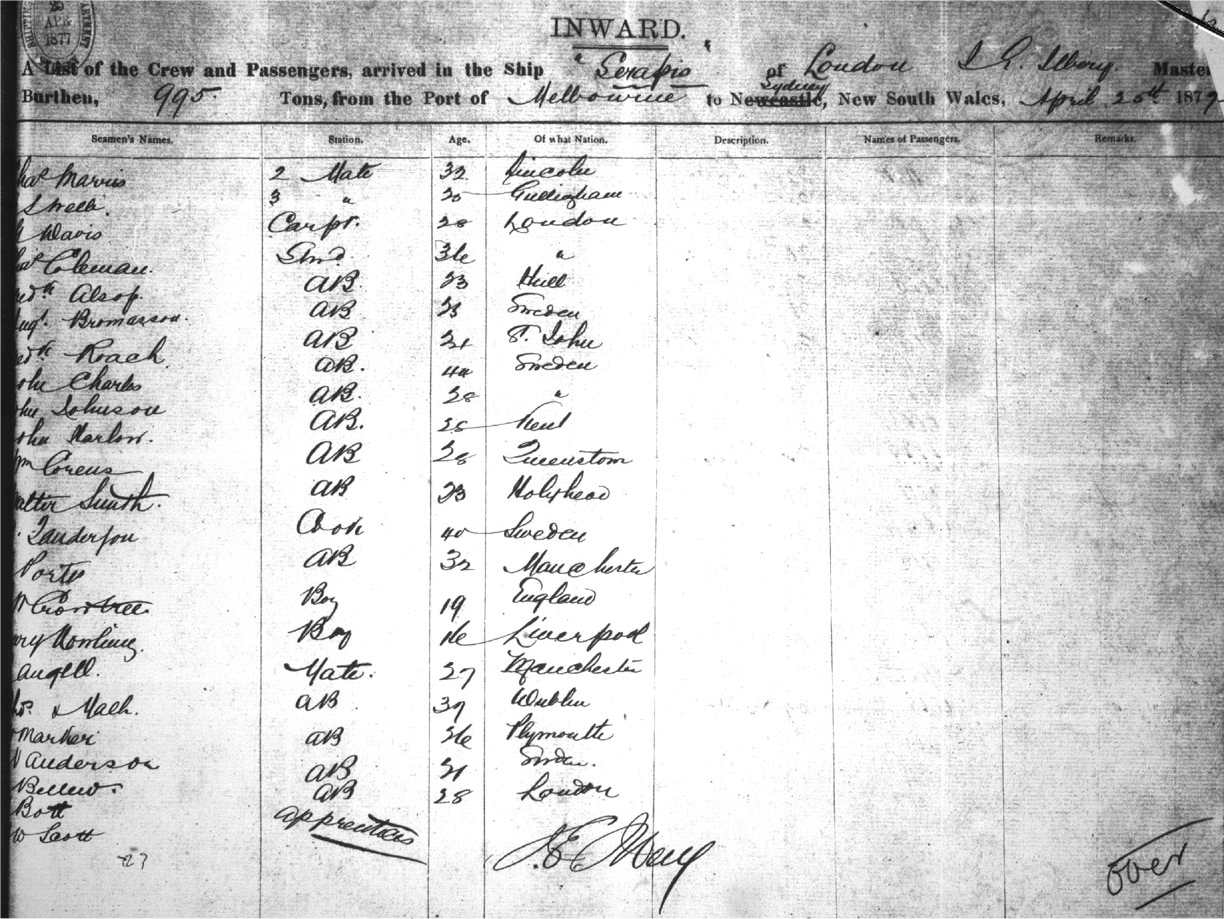 29
APR
1877
INWARD.
A List of the Crew and Passengers, arrived in the Ship "Serapis" of London Master
Burthen, 995 Tons, from the Port of Melbourne to Newcastle, Sydney New South Wales, April 187
Seamen's Names. Station. Age. Of what Nation. Description. Names of Passengers. Remarks.
Marris 2 Mate 32 Lincoln
3 " Gillingham
Davis Carpr. 28 London
Coleman. Stwd. 36 "
Alsop. AB 23 Hull
Bromasson. AB 23 Sweden
Roach. AB 21 St. John
Charles AB. 40 Sweden
Johnson AB. 28 "
Harlow. AB. 25 Kent
Corens AB 28 Queenstown
Smith. AB 23 Holyhead
Cook 40 Sweden
Porter AB 32 Manchester
Crowtree Boy 19 England
Boy 16 Liverpool
Angell. Mate. 27 Manchester
AB 39 Dublin
Marker AB 36 Plymouth
Anderson AB 21 Sweden.
Bellew. AB 28 London
Bott Apprentices
W Scott
23
over